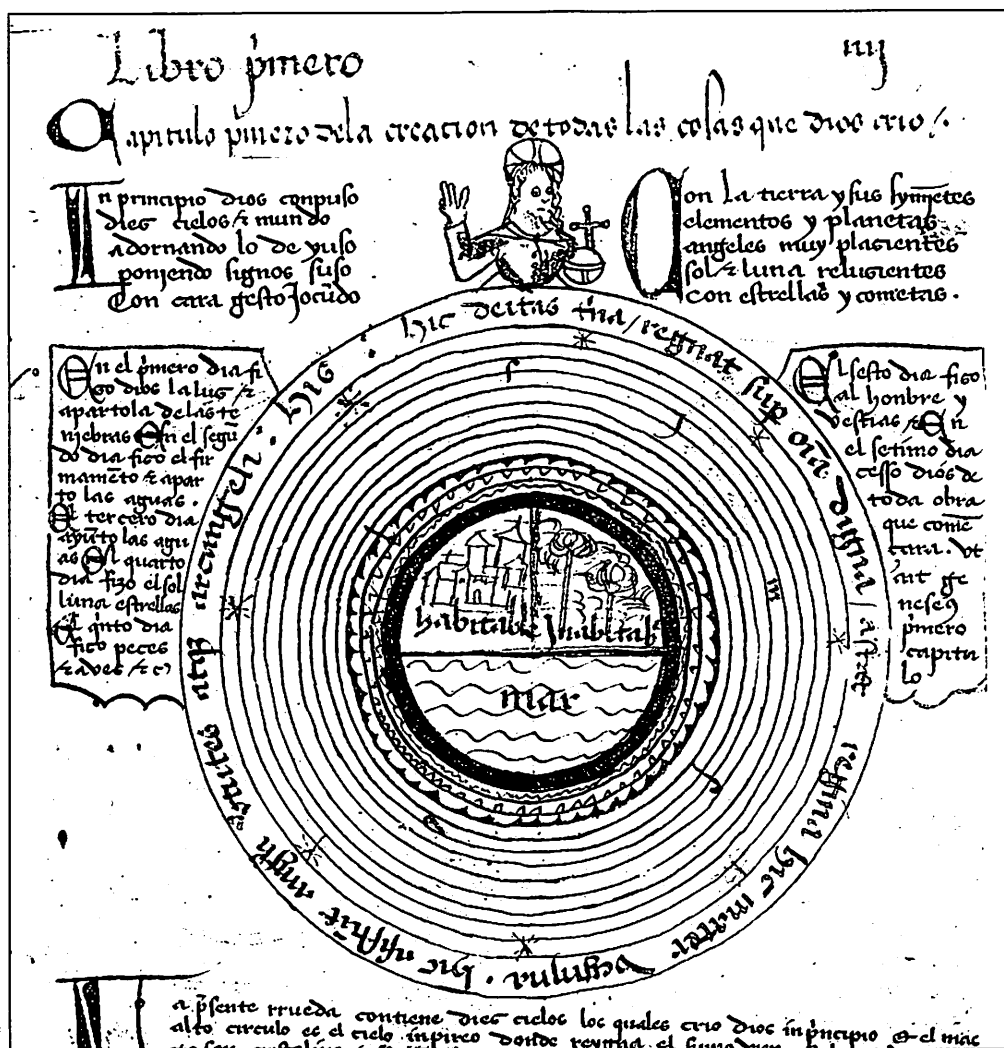 Libro pͥmero
iiij
Capitulo pͥmero dela creacion de todas las cosas que dios crio /.
In principio dios conpuso
dies cielos & mundo
adornando lo de yuso
poniendo signos suso
Con cara gesto Jocūdo
Con la tierra y sus symētes
elementos y planetas
angeles muy plasientes
sol & luna relusientes
con estrellas y cometas .
En el pͥmero dia fi
so dios la lus /&
apartola delas te
niebras En el segū
do dia fiso el fir
mamēto & apar
to las aguas .
El tercero dia
ayūto las agu
as El quarto
dia fizo el sol
luna estrellas
El qͥnto dia
fiso peces
& aves /&c
El sesto dia fiso
al honbre y
bestias /& En
el setimo dia
cesso dios de
toda obra
que comē
cara . vt
ait ge
nes
pͥmero
capitu
lo
hic deitas tͥna / regnat sup oīa digna /
regina hic mater
hic
virtutes atqꝫ arcangeli . hic :
habitable Inabitable
mar
a p̄sente rrueda contiene dies cielos los quales crio dios in pͥncipio & el mas
alto circulo es el cielo inpireo donde